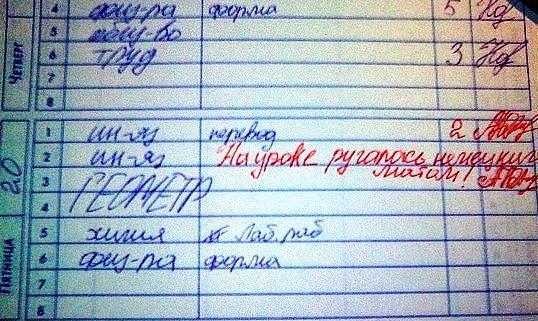 Четверг
4 физ-ра форма 5
5
6 труд 3
7
8
20
Пятница
1 ин-яз перевод 2
2 ин-яз На уроке ругалась немецким
3 матом!
ГЕОМЕТР
4
5 химия Лаб. раб
6 физ-ра форма
7
8